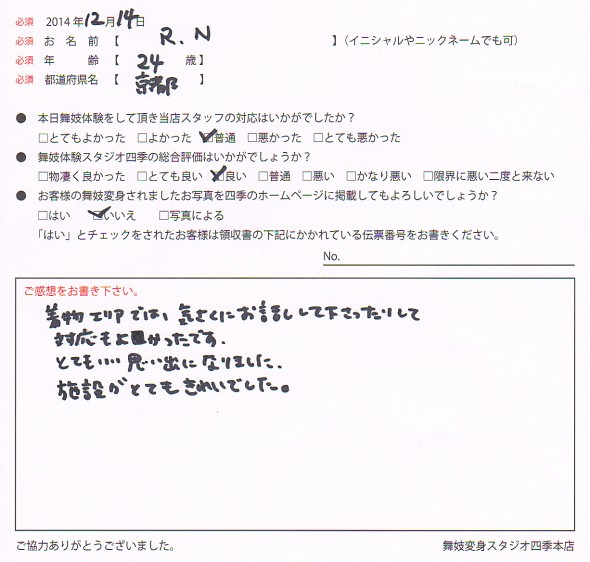 必須 2014年12月14日
必須 お名前【 R.N 】（イニシャルやニックネームでも可）
必須 年齢【 24 歳】
必須 都道府県名【 京都 】
● 本日舞妓体験をして頂き当店スタッフの対応はいかがでしたか？
□とてもよかった □よかった ☑普通 □悪かった □とても悪かった
● 舞妓体験スタジオ四季の総合評価はいかがでしょうか？
□物凄く良かった □とても良い ☑良い □普通 □悪い □かなり悪い □限界に悪い二度と来ない
● お客様の舞妓変身されましたお写真を四季のホームページに掲載してもよろしいでしょうか？
□はい ☑いいえ □写真による
「はい」とチェックをされたお客様は領収書の下記にかかれている伝票番号をお書きください。
No.
ご感想をお書き下さい。
着物エリアでは、気さくにお話しして下さったりして
対応もよかったです。
とてもいい思い出になりました。
施設がとてもきれいでした。
ご協力ありがとうございました。
舞妓変身スタジオ四季本店